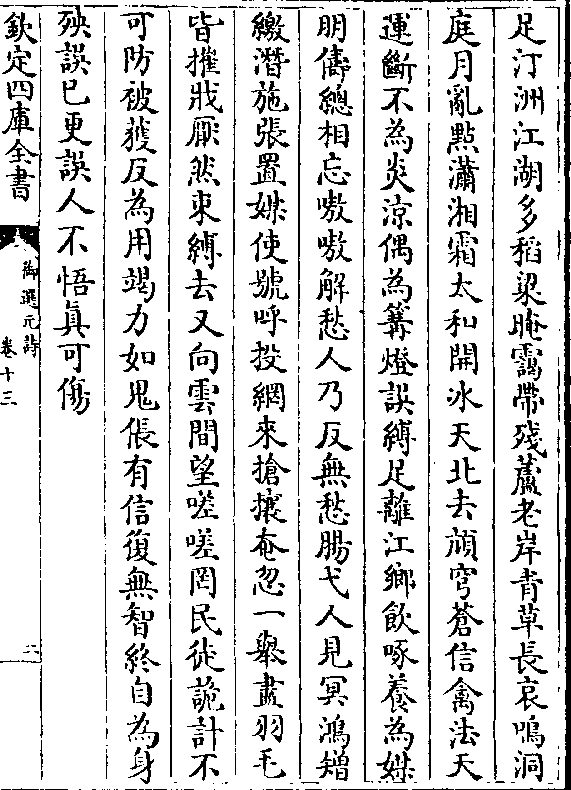 足汀洲江湖多稻粱晻靄帶殘蘆老岸青草長哀鳴洞
庭月亂點瀟湘霜太和開冰天北去頏穹蒼信禽法天
運斷不為炎涼偶為篝燈誤縛足離江鄉飲啄養為媒
朋儔總相忘嗷嗷解愁人乃反無愁腸弋人見冥鴻矰
繳潛施張置媒使號呼投網來搶攘奄忽一舉盡羽毛
皆摧戕厭然束縛去又向雲間望嗟嗟罔民徒詭計不
可防被獲反為用竭力如鬼倀有信復無智終自為身
殃誤已更誤人不悟真可傷
欽定四庫全書
御選元詩
卷十三